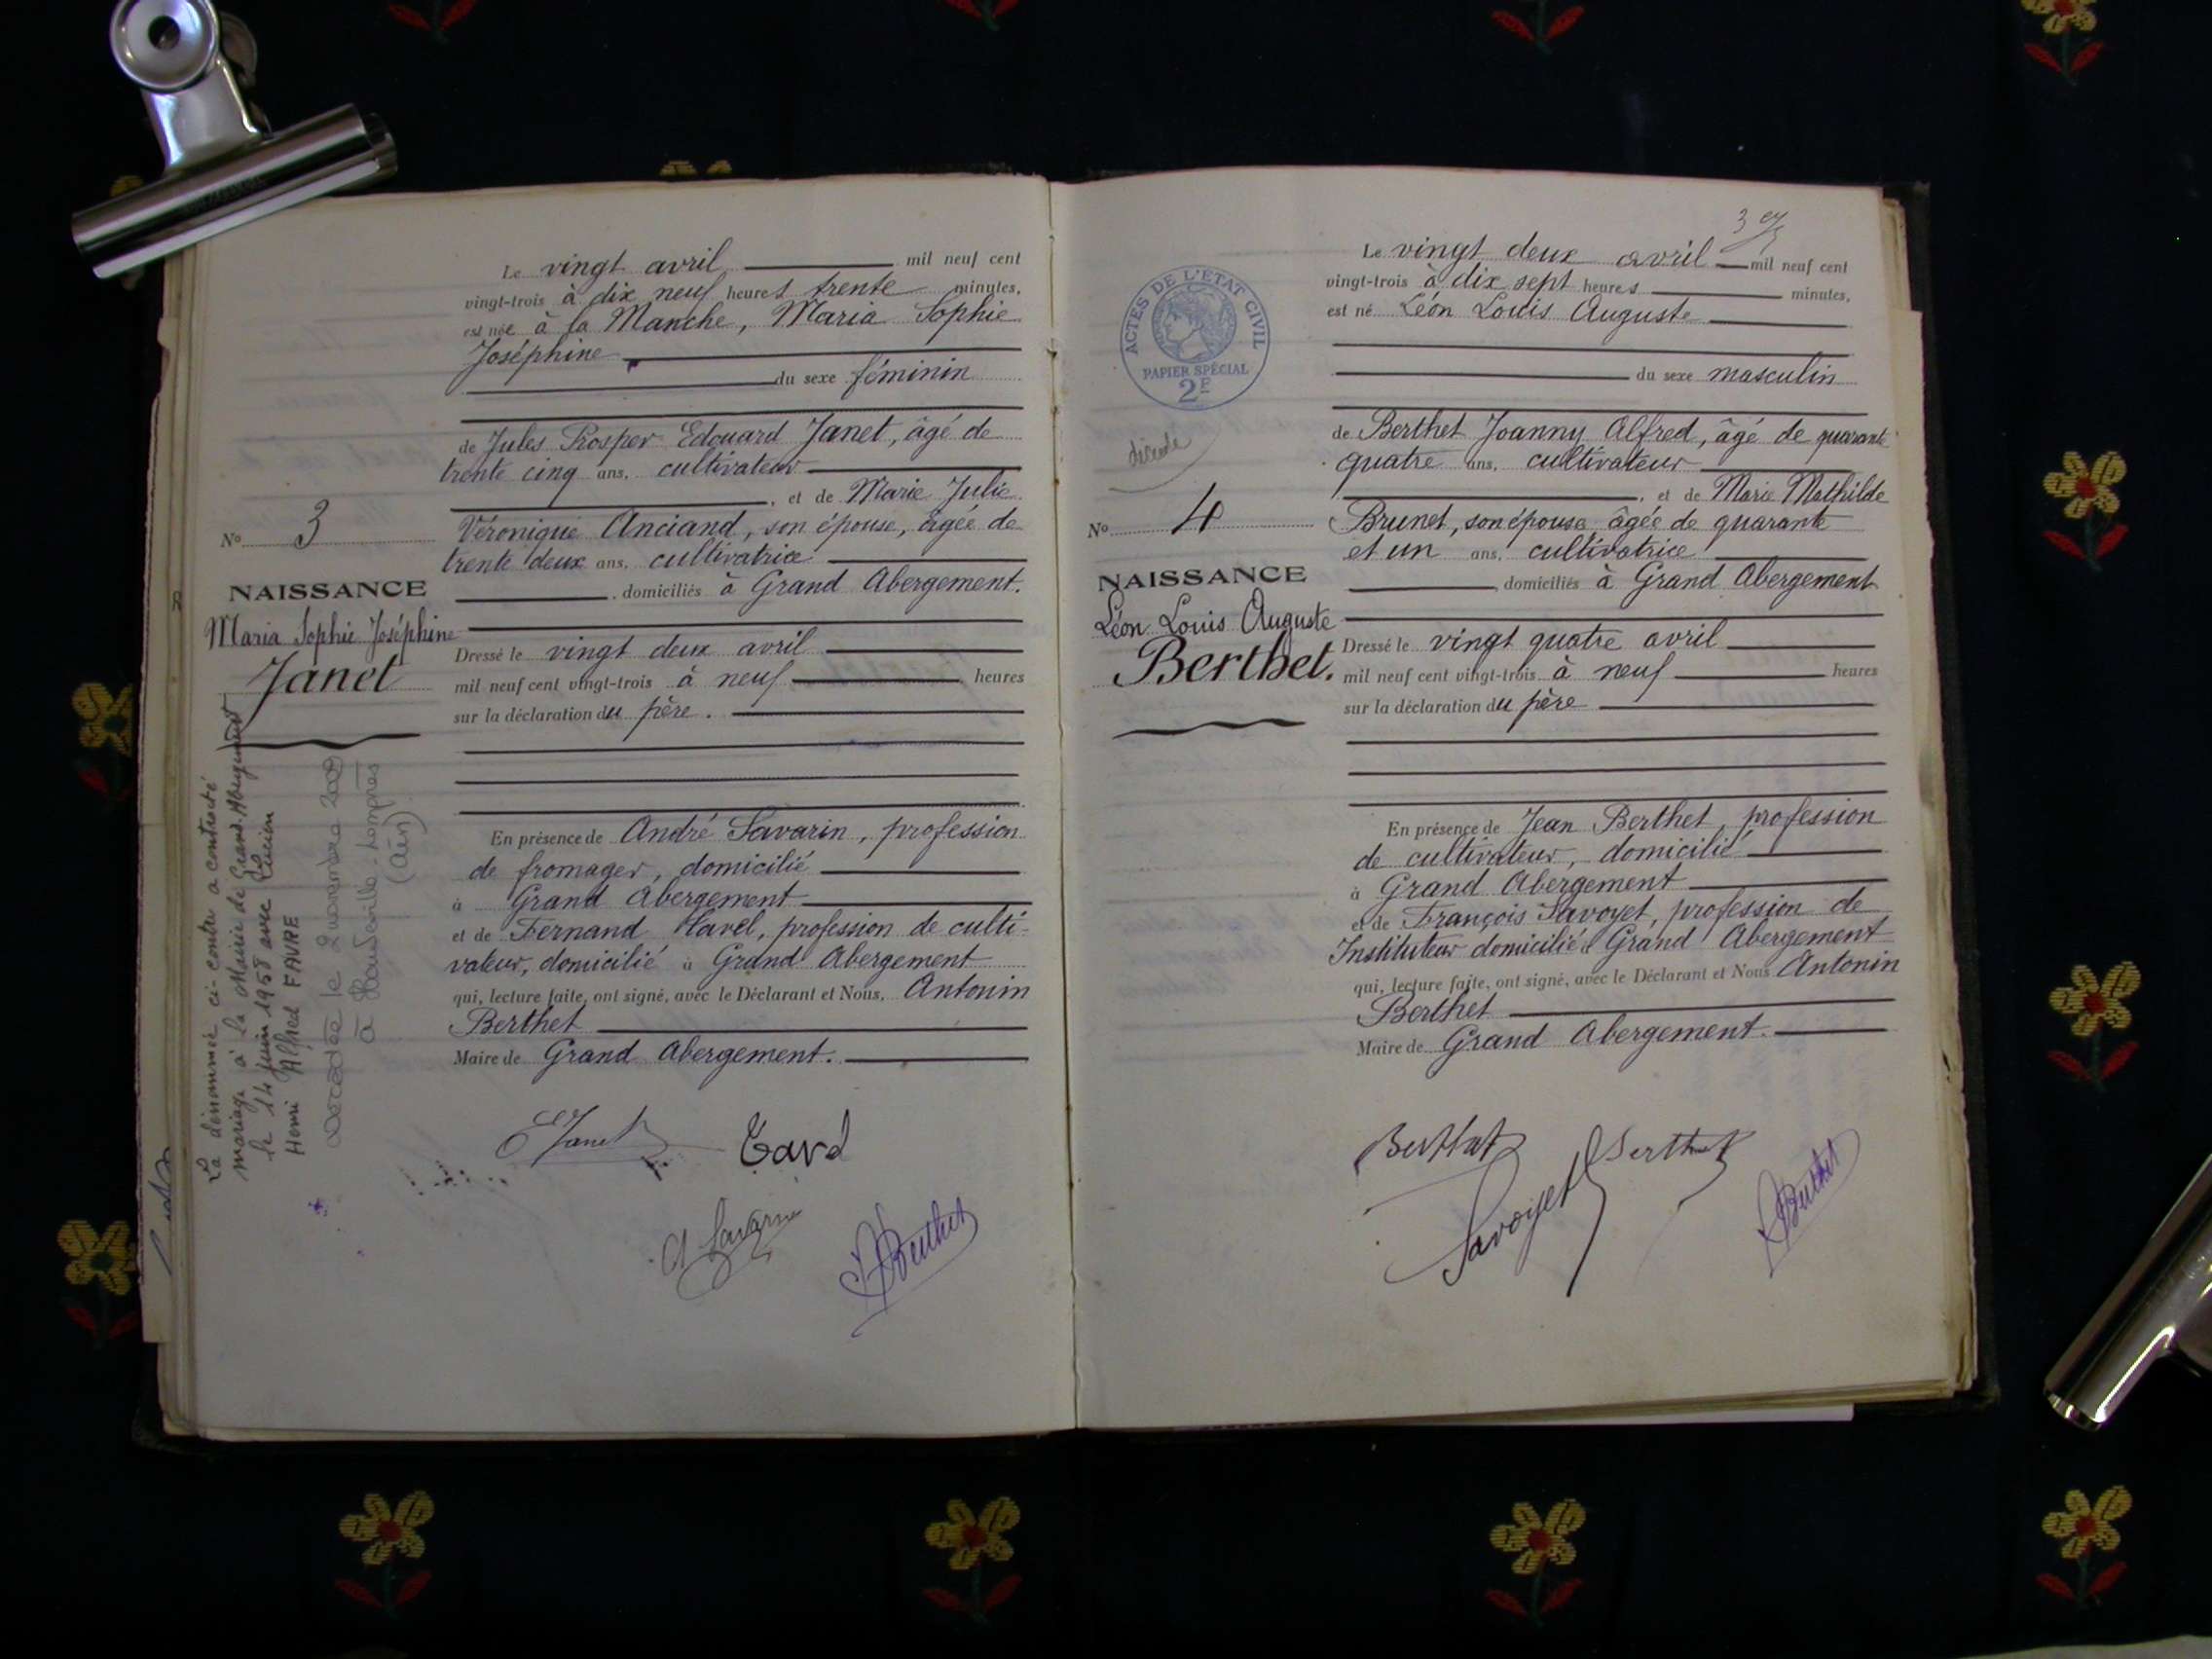 Le vingt avril mil neuf cent
vingt-trois à dix neuf heures trente minutes,
est née à la Manche, Maria Sophie
Joséphine
du sexe féminin
de Jules Prosper Edouard Janet, âgé de
trente cinq ans, cultivateur
, et de Marie Julie
Véronique Anciand, son épouse, âgée de
trente deux ans, cultivatrice
, domiciliés à Grand Abergement.
Dressé le vingt deux avril
mil neuf cent vingt-trois à neuf heures
sur la déclaration du père.
En présence de André Savarin, profession
de fromager, domicilié
à Grand Abergement
et de Fernand Havel, profession de culti-
vateur, domicilié à Grand Abergement
qui, lecture faite, ont signé, avec le Déclarant et Nous, Antonin
Berthet
Maire de Grand Abergement.
No 3
NAISSANCE
Maria Sophie Joséphine
Janet
La dénommée ci-contre a contracté
mariage à la Mairie de Grand-Abergement
le 14 juin 1958 avec Lucien
Henri Alfred FAVRE
Décédée le 2 novembre
à Hauteville-Lompnes
(Ain)
Janet
A Savarin
Berthet
3
Le vingt deux avril mil neuf cent
vingt-trois à dix sept heures minutes,
est né Léon Louis Auguste
du sexe masculin
de Berthet Joanny Alfred, âgé de quarante
quatre ans, cultivateur
, et de Marie Mathilde
Brunet, son épouse âgée de quarante
et un ans, cultivatrice
, domiciliés à Grand Abergement
Dressé le vingt quatre avril
mil neuf cent vingt-trois à neuf heures
sur la déclaration du père
En présence de Jean Berthet, profession
de cultivateur, domicilié
à Grand Abergement
et de François Savoyet, profession de
Instituteur domicilié à Grand Abergement
qui, lecture faite, ont signé, avec le Déclarant et Nous Antonin
Berthet
Maire de Grand Abergement.
ACTES DE L'ÉTAT CIVIL
PAPIER SPÉCIAL
2F
décédé
No 4
NAISSANCE
Léon Louis Auguste
Berthet.
Berthet
Berthet
Savoyet
Berthet